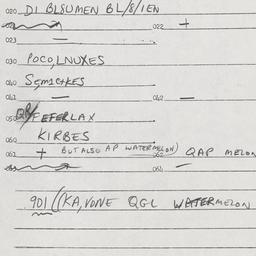 020 DI BLSUMEN BL/8/IEN
022 +
023 —
030 POCO,LNUXES
040 SEMICHKES
041 — 042 —
050 FEFERLAX
060 KIRBES
061 + BUT ALSO AP WATERMELON) 062 QAP MELON
064 —
901 ((KA,VONE QGL WATERMELON